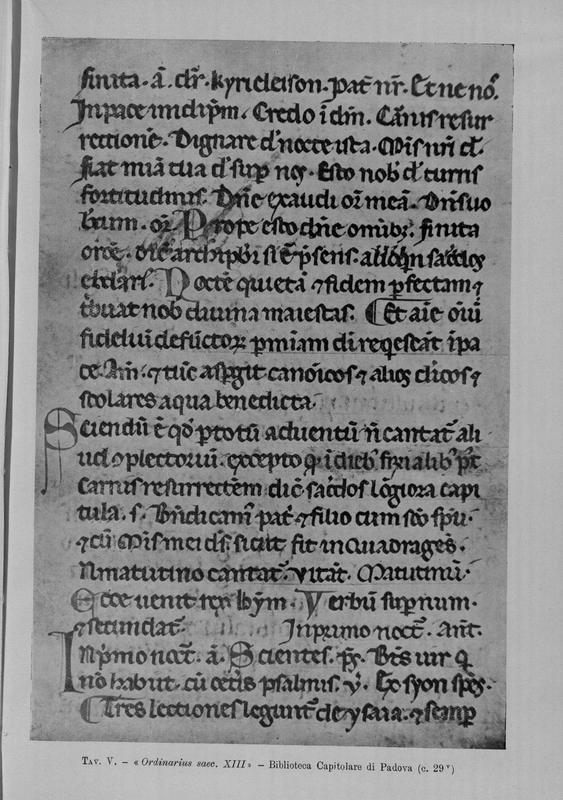 finita · a͞. cħr̃. kyrieleison. pat̃ nr̃. Et ne nõ.
In pace in idip̃m. Credo ĩ dm̃. Carnis resur
rectionẽ. Dignare dñe nocte ista. Mis̃ nr̃i d̃.
fiat mĩa tua dñe suꝑ nos. Esto nob̃ dñe turris
fortitudinis. Dñe exaudi or̃ meã. Dñs uo
bcum. or̃. Prope esto dñe om̃ibꝫ. finita
or̃õe. dic̃ archip̃br si ẽ p̃sens. al̃
Noctẽ quietã ⁊ fidem ꝑfectam ⁊
t̃buat nob̃ diuina maiestas. Et aĩe oĩuʒ
fideliũ defũctoꝝ ꝑ mĩam dei reqescãt ĩ pa
ce. Am̃. ⁊ tũc asꝑgit canõicos ⁊ alios cl̃icos ⁊
scolares aqua benedicta.
Sciendũ ẽ qd̃ ꝑ totũ aduentũ ñ cantat̃ ali
ud ꝯpletoriũ. excepto qd̃ ĩ dieb̃ fixialib̃ p̃t
carnis resurrectõem dic̃ sac̃dos lõgiora capi
tula. s. Bñdicam̃ pat̃. ⁊ filio cum sc̃o sp̃u.
⁊ cũ Mis̃ mei ds̃. sicut fit in Quadrages̃.
N matutino cantat̃. vitat̃. Matutinũ.
Ecce uenit rex. hym̃. Verbũ suꝑnum.
⁊ secundat̃. In primo noct̃. ant̃.
In p̃mo noct̃. a͞. Scientes. ps̃. Bt̃s uir q
nõ habiit. cũ cet̃is psalmis. v̓. Ex syon sp̃es.
Tres lectiones legunt̃ de ysaia. ⁊ semꝑ
Tav. V. – « Ordinarius saec. XIII » – Biblioteca Capitolare di Padova (c. 29ᵛ)